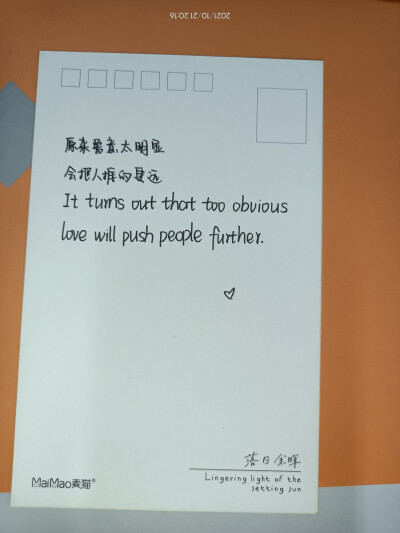 2021/10/21 20:16
原来爱意太明显
会把人推的更远
It turns out that too obvious
love will push people further.
落日余晖
Lingering light of the
setting sun
MaiMao麦猫®